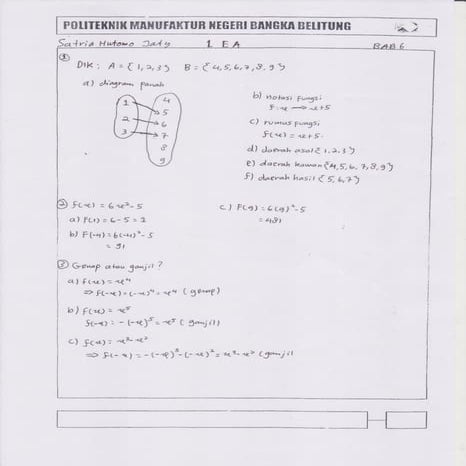 POLITEKNIK MANUFAKTUR NEGERI BANGKA BELITUNG
Satria Hutomo Jaty 1 EA BAB 6
① DIK: A = {1,2,3} B = {4,5,6,7,8,9}
a) diagram panah
1
2
3
4
5
6
7
8
9
b) notasi fungsi
f: x → x+5
c) rumus fungsi
f(x) = x+5
d) daerah asal {1,2,3}
e) daerah kawan {4,5,6,7,8,9}
f) daerah hasil {5,6,7}
② f(x) = 6x²-5
a) F(1) = 6-5 = 1
b) F(-4) = 6(-4)²-5
= 91
c) F(9) = 6(9)²-5
= 481
③ Genap atau ganjil?
a) f(x) = x⁴
⇒ f(-x) = (-x)⁴ = x⁴ (genap)
b) f(x) = x⁵
f(-x) = -(-x)⁵ = x⁵ (ganjil)
c) f(x) = x³-x²
⇒ f(-x) = -(-x)³-(-x)² = x³-x² (ganjil